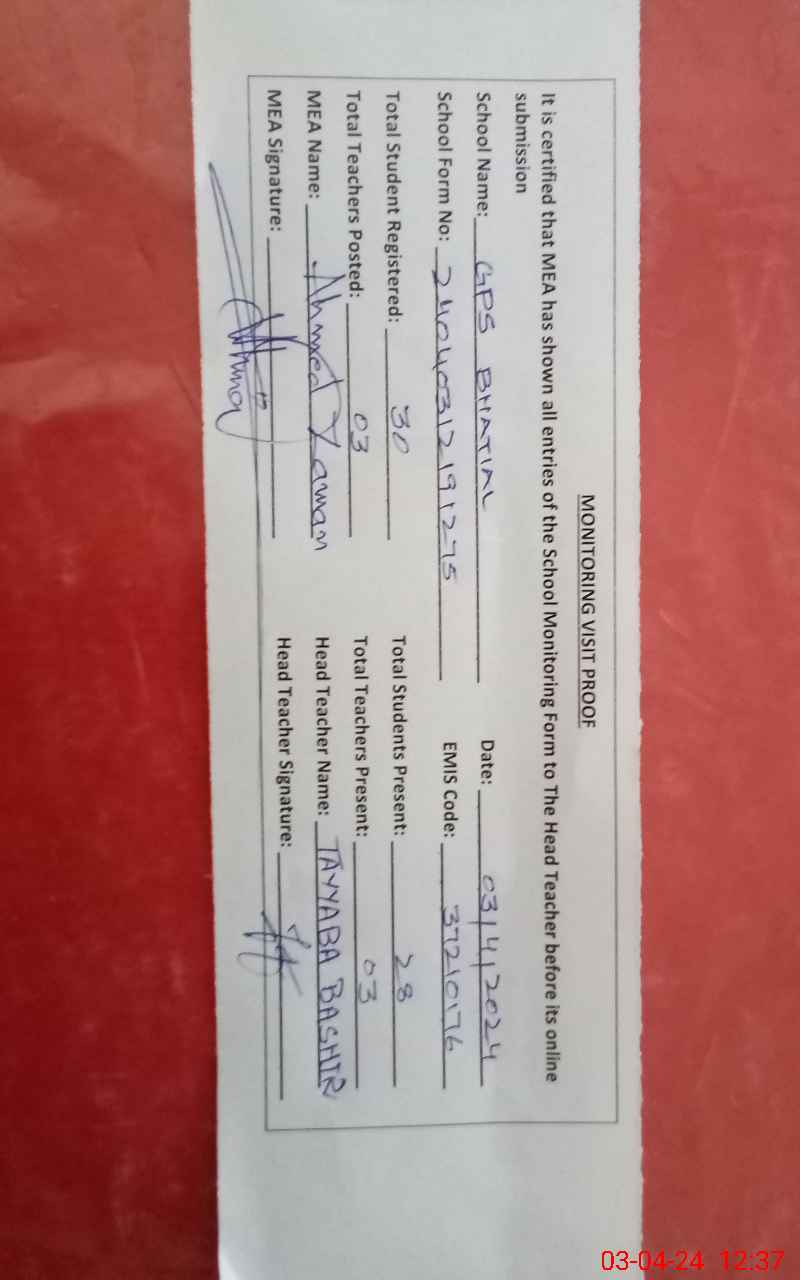 MONITORING VISIT PROOF
It is certified that MEA has shown all entries of the School Monitoring Form to The Head Teacher before its online
submission
School Name: GPS BHATIAL Date: 03/4/2024
School Form No: 24040312191275 EMIS Code: 37210176
Total Student Registered: 30 Total Students Present: 28
Total Teachers Posted: 03 Total Teachers Present: 03
MEA Name: Ahmed Zaman Head Teacher Name: TAYYABA BASHIR
MEA Signature: Head Teacher Signature:
03-04-24 12:37